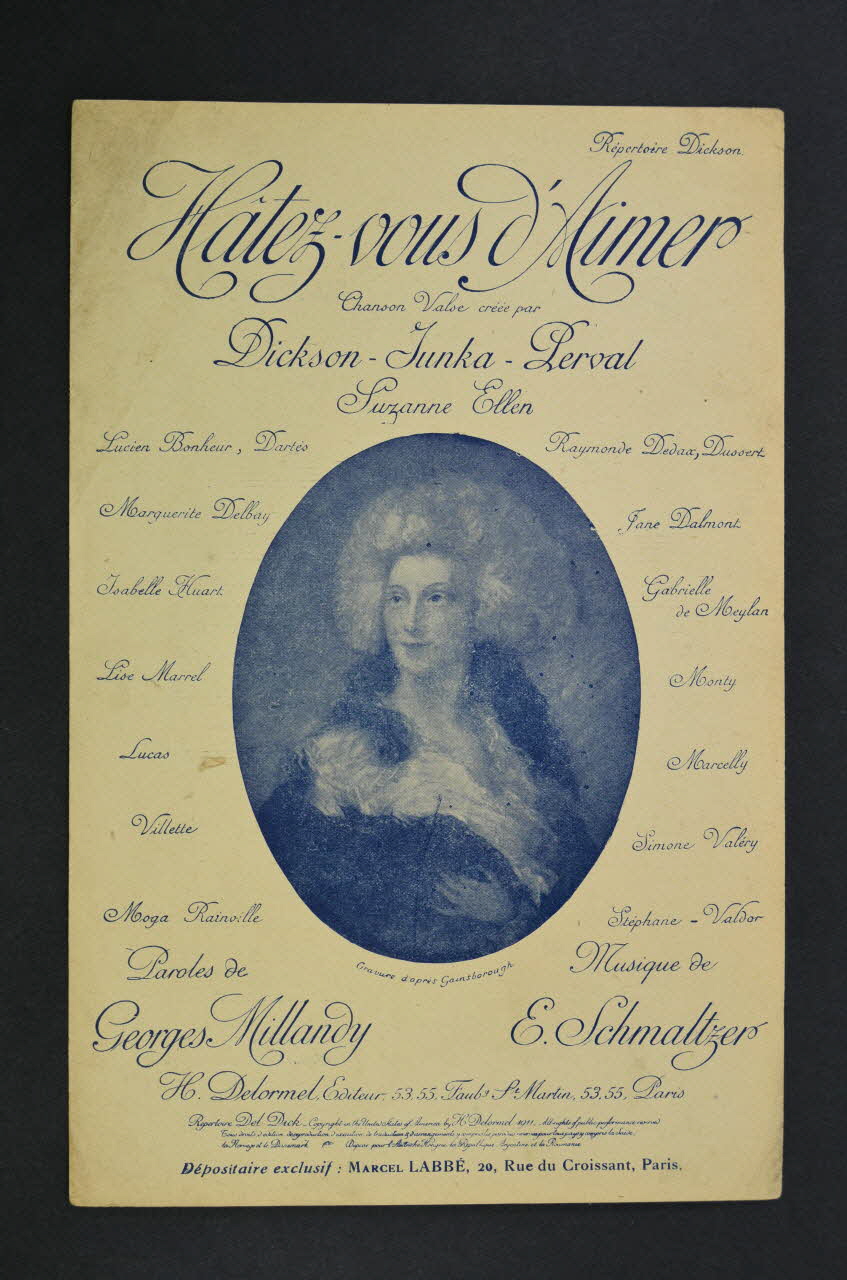 Répertoire Dickson.
Hâtez-vous d'Aimer
Chanson Valse créée par
Dickson - Junka - Perval
Suzanne Ellen
Lucien Bonheur, Dartès
Raymonde Dedax, Dussert
Marguerite Delbay
Jane Dalmont
Isabelle Huart
Gabrielle
de Meylan
Lise Marrel
Monty
Lucas
Marcelly
Villette
Simone Valéry
Moga Rainville
Stéphane - Valdor
Gravure d'après Gainsborough
Paroles de
Musique de
Georges Millandy
E. Schmaltzer
H. Delormel, Editeur, 53,55, Faubg St Martin, 53,55, Paris
Répertoire Del Dick - Copyright in the United States of America by H. Delormel 1911. All rights of public performance reserved
Tous droits d'édition de reproduction d'exécution de traduction & d'arrangements
la Norvège et le Danemark
Dépositaire exclusif : MARCEL LABBÉ, 20, Rue du Croissant, Paris.